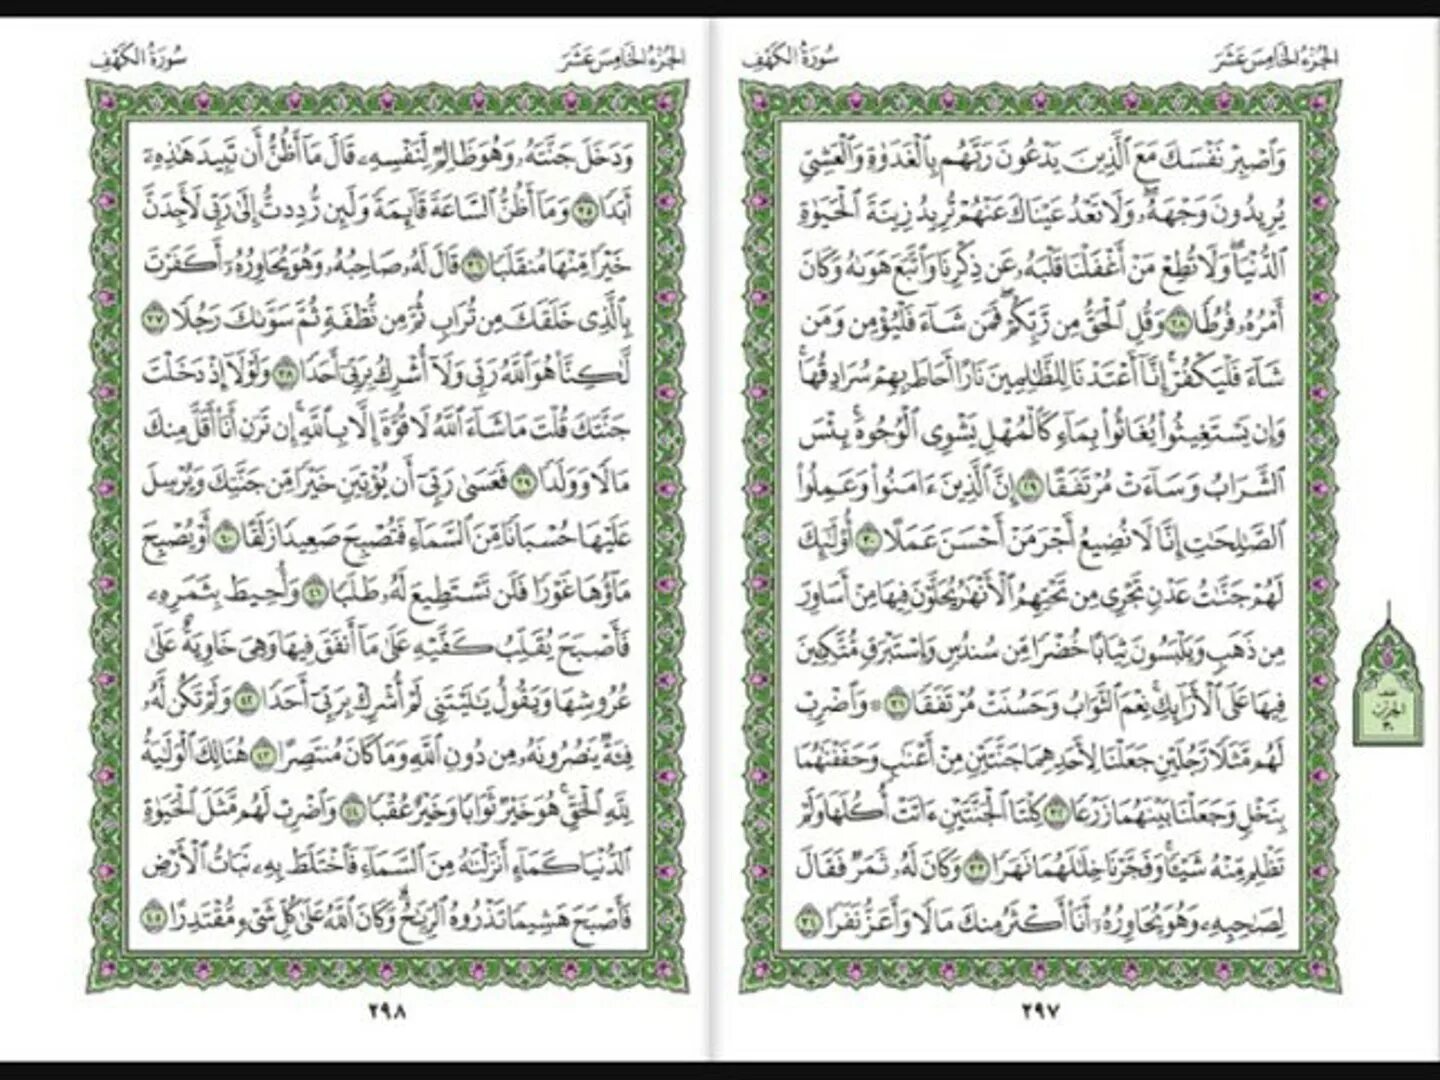 الجزء الخامس عشر
سورة الكهف
وَٱصۡبِرۡ نَفۡسَكَ مَعَ ٱلَّذِينَ يَدۡعُونَ رَبَّهُم بِٱلۡغَدَوٰةِ وَٱلۡعَشِيِّ
يُرِيدُونَ وَجۡهَهُۥۖ وَلَا تَعۡدُ عَيۡنَاكَ عَنۡهُمۡ تُرِيدُ زِينَةَ ٱلۡحَيَوٰةِ
ٱلدُّنۡيَاۖ وَلَا تُطِعۡ مَنۡ أَغۡفَلۡنَا قَلۡبَهُۥ عَن ذِكۡرِنَا وَٱتَّبَعَ هَوَىٰهُ وَكَانَ
أَمۡرُهُۥ فُرُطٗا ٢٨ وَقُلِ ٱلۡحَقُّ مِن رَّبِّكُمۡۖ فَمَن شَآءَ فَلۡيُؤۡمِن وَمَن
شَآءَ فَلۡيَكۡفُرۡۚ إِنَّآ أَعۡتَدۡنَا لِلظَّٰلِمِينَ نَارًا أَحَاطَ بِهِمۡ سُرَادِقُهَاۚ
وَإِن يَسۡتَغِيثُواْ يُغَاثُواْ بِمَآءٖ كَٱلۡمُهۡلِ يَشۡوِي ٱلۡوُجُوهَۚ بِئۡسَ
ٱلشَّرَابُ وَسَآءَتۡ مُرۡتَفَقًا ٢٩ إِنَّ ٱلَّذِينَ ءَامَنُواْ وَعَمِلُواْ
ٱلصَّٰلِحَٰتِ إِنَّا لَا نُضِيعُ أَجۡرَ مَنۡ أَحۡسَنَ عَمَلًا ٣٠ أُوْلَٰٓئِكَ
لَهُمۡ جَنَّٰتُ عَدۡنٖ تَجۡرِي مِن تَحۡتِهِمُ ٱلۡأَنۡهَٰرُ يُحَلَّوۡنَ فِيهَا مِنۡ أَسَاوِرَ
مِن ذَهَبٖ وَيَلۡبَسُونَ ثِيَابًا خُضۡرٗا مِّن سُندُسٖ وَإِسۡتَبۡرَقٖ مُّتَّكِـِٔينَ
فِيهَا عَلَى ٱلۡأَرَآئِكِۚ نِعۡمَ ٱلثَّوَابُ وَحَسُنَتۡ مُرۡتَفَقٗا ٣١ ۞ وَٱضۡرِبۡ
لَهُم مَّثَلٗا رَّجُلَيۡنِ جَعَلۡنَا لِأَحَدِهِمَا جَنَّتَيۡنِ مِنۡ أَعۡنَٰبٖ وَحَفَفۡنَٰهُمَا
بِنَخۡلٖ وَجَعَلۡنَا بَيۡنَهُمَا زَرۡعٗا ٣٢ كِلۡتَا ٱلۡجَنَّتَيۡنِ ءَاتَتۡ أُكُلَهَا وَلَمۡ
تَظۡلِم مِّنۡهُ شَيۡـٔٗاۚ وَفَجَّرۡنَا خِلَٰلَهُمَا نَهَرٗا ٣٣ وَكَانَ لَهُۥ ثَمَرٞ فَقَالَ
لِصَٰحِبِهِۦ وَهُوَ يُحَاوِرُهُۥٓ أَنَا۠ أَكۡثَرُ مِنكَ مَالٗا وَأَعَزُّ نَفَرٗا ٣٤
نصف
الحزب
٣٠
٢٩٧
الجزء الخامس عشر
سورة الكهف
وَدَخَلَ جَنَّتَهُۥ وَهُوَ ظَالِمٞ لِّنَفۡسِهِۦ قَالَ مَآ أَظُنُّ أَن تَبِيدَ هَٰذِهِۦٓ
أَبَدٗا ٣٥ وَمَآ أَظُنُّ ٱلسَّاعَةَ قَآئِمَةٗ وَلَئِن رُّدِدتُّ إِلَىٰ رَبِّي لَأَجِدَنَّ
خَيۡرٗا مِّنۡهَا مُنقَلَبٗا ٣٦ قَالَ لَهُۥ صَاحِبُهُۥ وَهُوَ يُحَاوِرُهُۥٓ أَكَفَرۡتَ
بِٱلَّذِي خَلَقَكَ مِن تُرَابٖ ثُمَّ مِن نُّطۡفَةٖ ثُمَّ سَوَّىٰكَ رَجُلٗا ٣٧
لَّٰكِنَّا۠ هُوَ ٱللَّهُ رَبِّي وَلَآ أُشۡرِكُ بِرَبِّيٓ أَحَدٗا ٣٨ وَلَوۡلَآ إِذۡ دَخَلۡتَ
جَنَّتَكَ قُلۡتَ مَا شَآءَ ٱللَّهُ لَا قُوَّةَ إِلَّا بِٱللَّهِۚ إِن تَرَنِ أَنَا۠ أَقَلَّ مِنكَ
مَالٗا وَوَلَدٗا ٣٩ فَعَسَىٰ رَبِّيٓ أَن يُؤۡتِيَنِ خَيۡرٗا مِّن جَنَّتِكَ وَيُرۡسِلَ
عَلَيۡهَا حُسۡبَانٗا مِّنَ ٱلسَّمَآءِ فَتُصۡبِحَ صَعِيدٗا زَلَقًا ٤٠ أَوۡ يُصۡبِحَ
مَآؤُهَا غَوۡرٗا فَلَن تَسۡتَطِيعَ لَهُۥ طَلَبٗا ٤١ وَأُحِيطَ بِثَمَرِهِۦ
فَأَصۡبَحَ يُقَلِّبُ كَفَّيۡهِ عَلَىٰ مَآ أَنفَقَ فِيهَا وَهِيَ خَاوِيَةٌ عَلَىٰ
عُرُوشِهَا وَيَقُولُ يَٰلَيۡتَنِي لَمۡ أُشۡرِكۡ بِرَبِّيٓ أَحَدٗا ٤٢ وَلَمۡ تَكُن لَّهُۥ
فِئَةٞ يَنصُرُونَهُۥ مِن دُونِ ٱللَّهِ وَمَا كَانَ مُنتَصِرًا ٤٣ هُنَالِكَ ٱلۡوَلَٰيَةُ
لِلَّهِ ٱلۡحَقِّۚ هُوَ خَيۡرٞ ثَوَابٗا وَخَيۡرٌ عُقۡبٗا ٤٤ وَٱضۡرِبۡ لَهُم مَّثَلَ ٱلۡحَيَوٰةِ
ٱلدُّنۡيَا كَمَآءٍ أَنزَلۡنَٰهُ مِنَ ٱلسَّمَآءِ فَٱخۡتَلَطَ بِهِۦ نَبَاتُ ٱلۡأَرۡضِ
فَأَصۡبَحَ هَشِيمٗا تَذۡرُوهُ ٱلرِّيَٰحُۗ وَكَانَ ٱللَّهُ عَلَىٰ كُلِّ شَيۡءٖ مُّقۡتَدِرًا ٤٥
٢٩٨